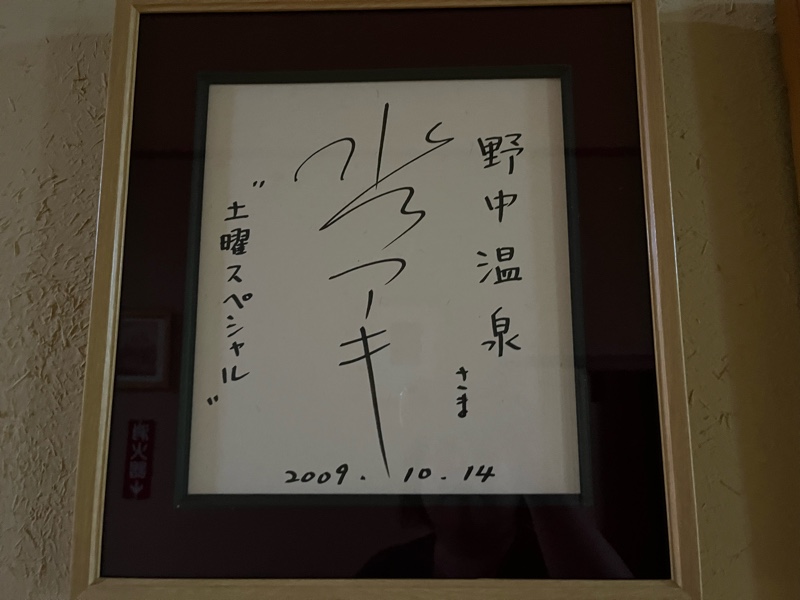 野中温泉
さま
水乃アキ
"土曜スペシャル"
2009.10.14
消火器